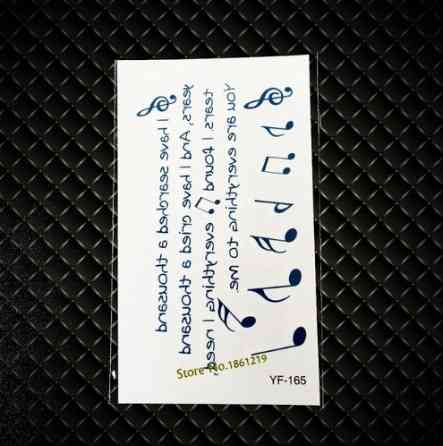 I have searched a thousand
years, And I have cried a thousand
tears. I found everything I need,
You are everything to me
Store No.1861219
YF-165